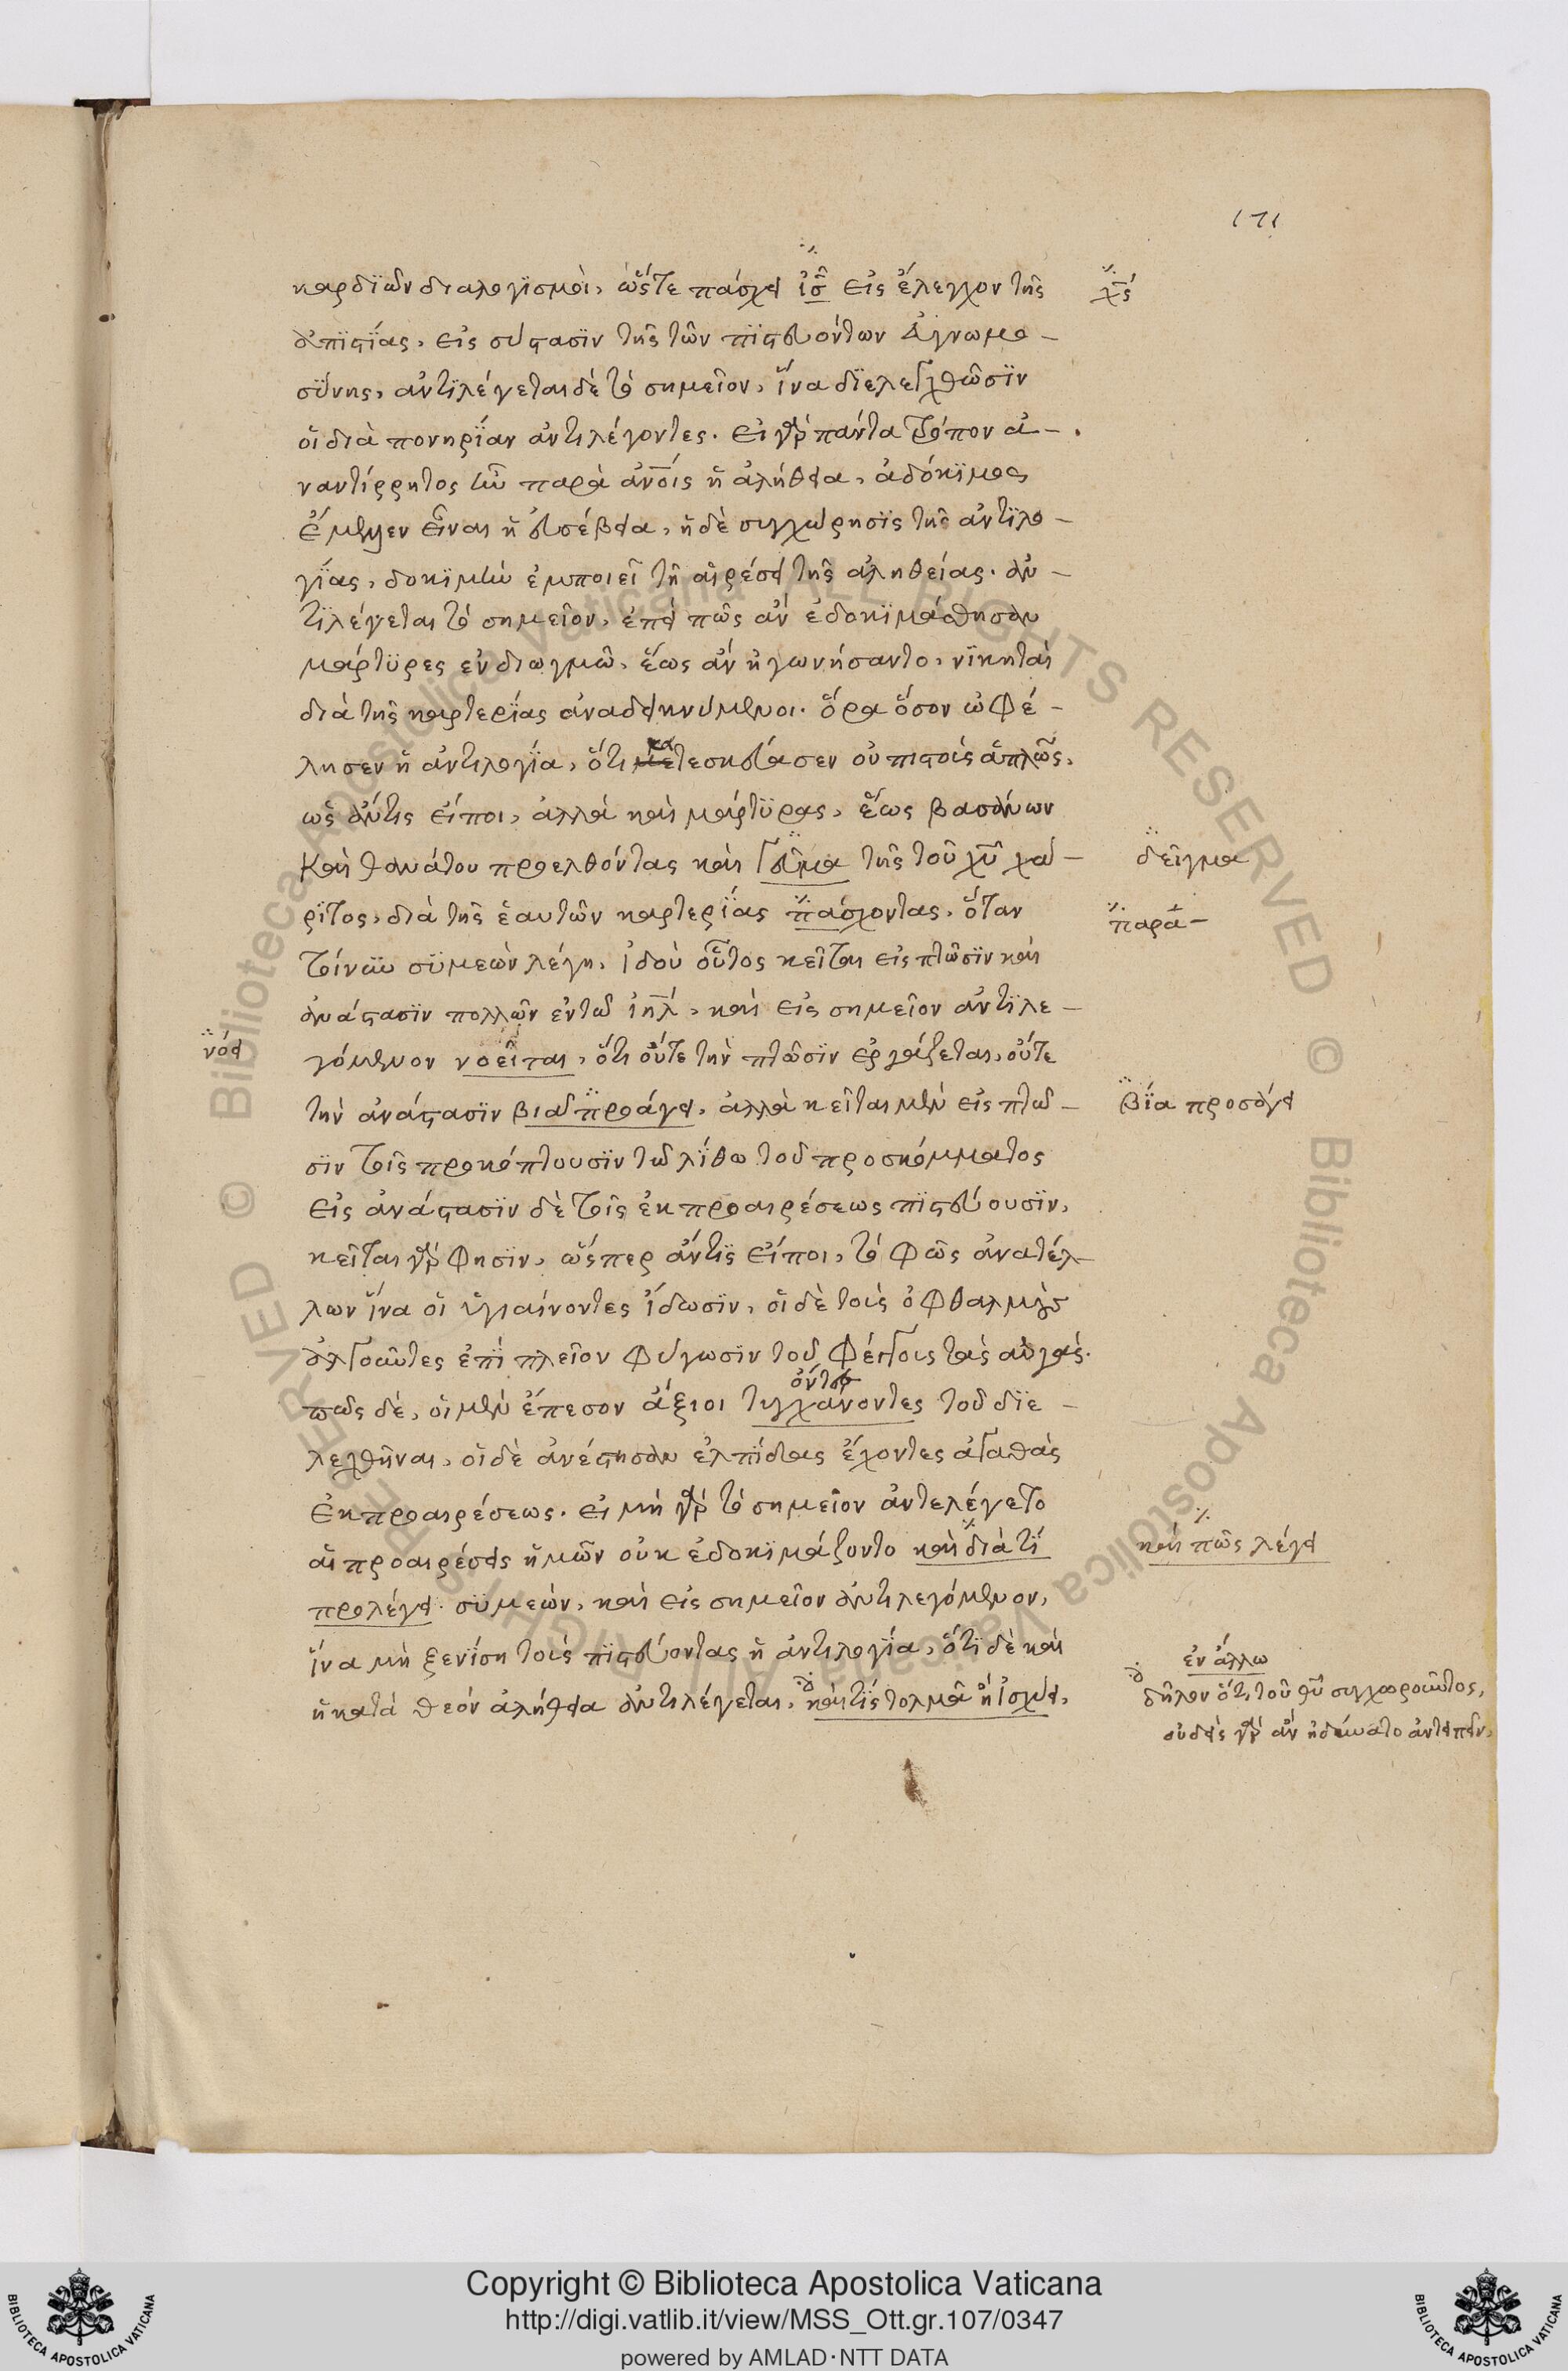 171
καρδϊῶν διαλογϊσμοὶ, ὥστε πάσχει ἰσ̅ εἰς ἔλεγχον τῆς
χσ̅
ἀπϊστΐας, εἰς σύστασϊν τῆς τῶν πϊστευόντων εὐγνωμο-
σΰνης, ἀντϊλέγεται δὲ τὸ σημεῖον, ἵνα δϊελεγχθῶσϊν
οἱ διὰ πονηρΐαν ἀντιλέγοντες. εἰ γὰρ πάντα τρόπον ἀ-
ναντίρρητος ἦν παρὰ ἀν̅οις ἡ ἀλήθεια, ἀδόκϊμος
ἔμελλεν εἶναι ἡ εὐσέβεια, ἡ δὲ συγχώρησϊς τῆς ἀντϊλο-
γΐας, δοκϊμὴν ἐμποιεῖ τῆ αἱρέσει τῆς ἀληθείας. ἀν-
τϊλέγεται τὸ σημεῖον, ἐπεὶ πῶς ἂν ἐδοκϊμάσθησαν
μάρτϋρες ἐν διωγμῶ, ἕως ἂν ἠγωνήσαντο, νϊκηταὶ
διὰ τῆς καρτερΐας ἀναδεικνύμενοι. ὅρα ὅσον ὠφέ-
λησεν ἡ ἀντιλογΐα, ὅτι κατεσκεύασεν οὐ πιστοὺς ἁπλῶς,
ὡς ἄν τις εἴποι, ἀλλὰ καὶ μάρτϋρας, ἕως βασάνων
καὶ θανάτου προελθόντας καὶ γεῦμα τῆς τοῦ χυ̅ χά-
δεῖγμα
ρϊτος, διὰ τῆς ἑαυτῶν καρτερΐας πάσχοντας, ὅταν
παρά-
τοίνυν σϋμεὼν λέγη, ἰδοὺ οὗτος κεῖται εἰς πτῶσϊν καὶ
ἀνάστασϊν πολλῶν ἐν τῶ ἰηλ̅, καὶ εἰς σημεῖον ἀντϊλε-
νόει
γόμενον νοεῖται, ὅτι οὔτε τὴν πτῶσϊν ἐργάζεται, οὔτε
τὴν ἀνάστασϊν βιαπροάγει, ἀλλὰ κεῖται μὲν εἰς πτῶ-
βΐα προσάγει
σϊν τοῖς προκόπτουσϊν τῶ λΐθω τοῦ προσκόμματος
εἰς ἀνάστασϊν δὲ τοῖς ἐκ προαιρέσεως πϊστεύουσϊν,
κεῖται γὰρ φησϊν, ὥσπερ ἄν τϊς εἴποι, τὸ φῶς ἀνατέλ-
λων ἵνα οἱ ὑγιαίνοντες ἴδωσϊν, οἱ δὲ τοὺς ὀφθαλμοὺσ
ἀλγοῦντες ἐπὶ πλεῖον φύγωσϊν τοῦ φέγγους τὰς αὐγάς.
ὄντες
πῶς δὲ, οἱ μὲν ἔπεσον ἄξιοι τυγχάνοντες τοῦ δϊε-
λεγχθῆναι, οἱ δὲ ἀνέστησαν ἐλπΐδας ἔχοντες ἀγαθὰς
ἐκ προαιρέσεως. εἰ μὴ γὰρ τὸ σημεῖον ἀντελέγετο
αἱ προαιρέσεις ἡμῶν οὐκ ἐδοκϊμάζοντο καὶ διὰ τΐ
καὶ πῶς λέγει
προλέγει σϋμεών, καὶ εἰς σημεῖον ἀντιλεγόμενον,
ἵνα μὴ ξενίση τοὺς πϊστεύοντας ἡ ἀντιλογΐα, ὅτϊ δὲ καὶ
ἡ κατὰ θεὸν ἀλήθεια ἀντιλέγεται, καὶ τϊς τολμᾶ ἢ ἰσχύει,
ἐν ἄλλω
δῆλον ὅτι τοῦ θυ̅ συγχωροῦντος,
οὐδεὶς γὰρ ἂν ἠδύνατο ἀντειπεῖν,
Copyright © Biblioteca Apostolica Vaticana
http://digi.vatlib.it/view/MSS_Ott.gr.107/0347
powered by AMLAD·NTT DATA